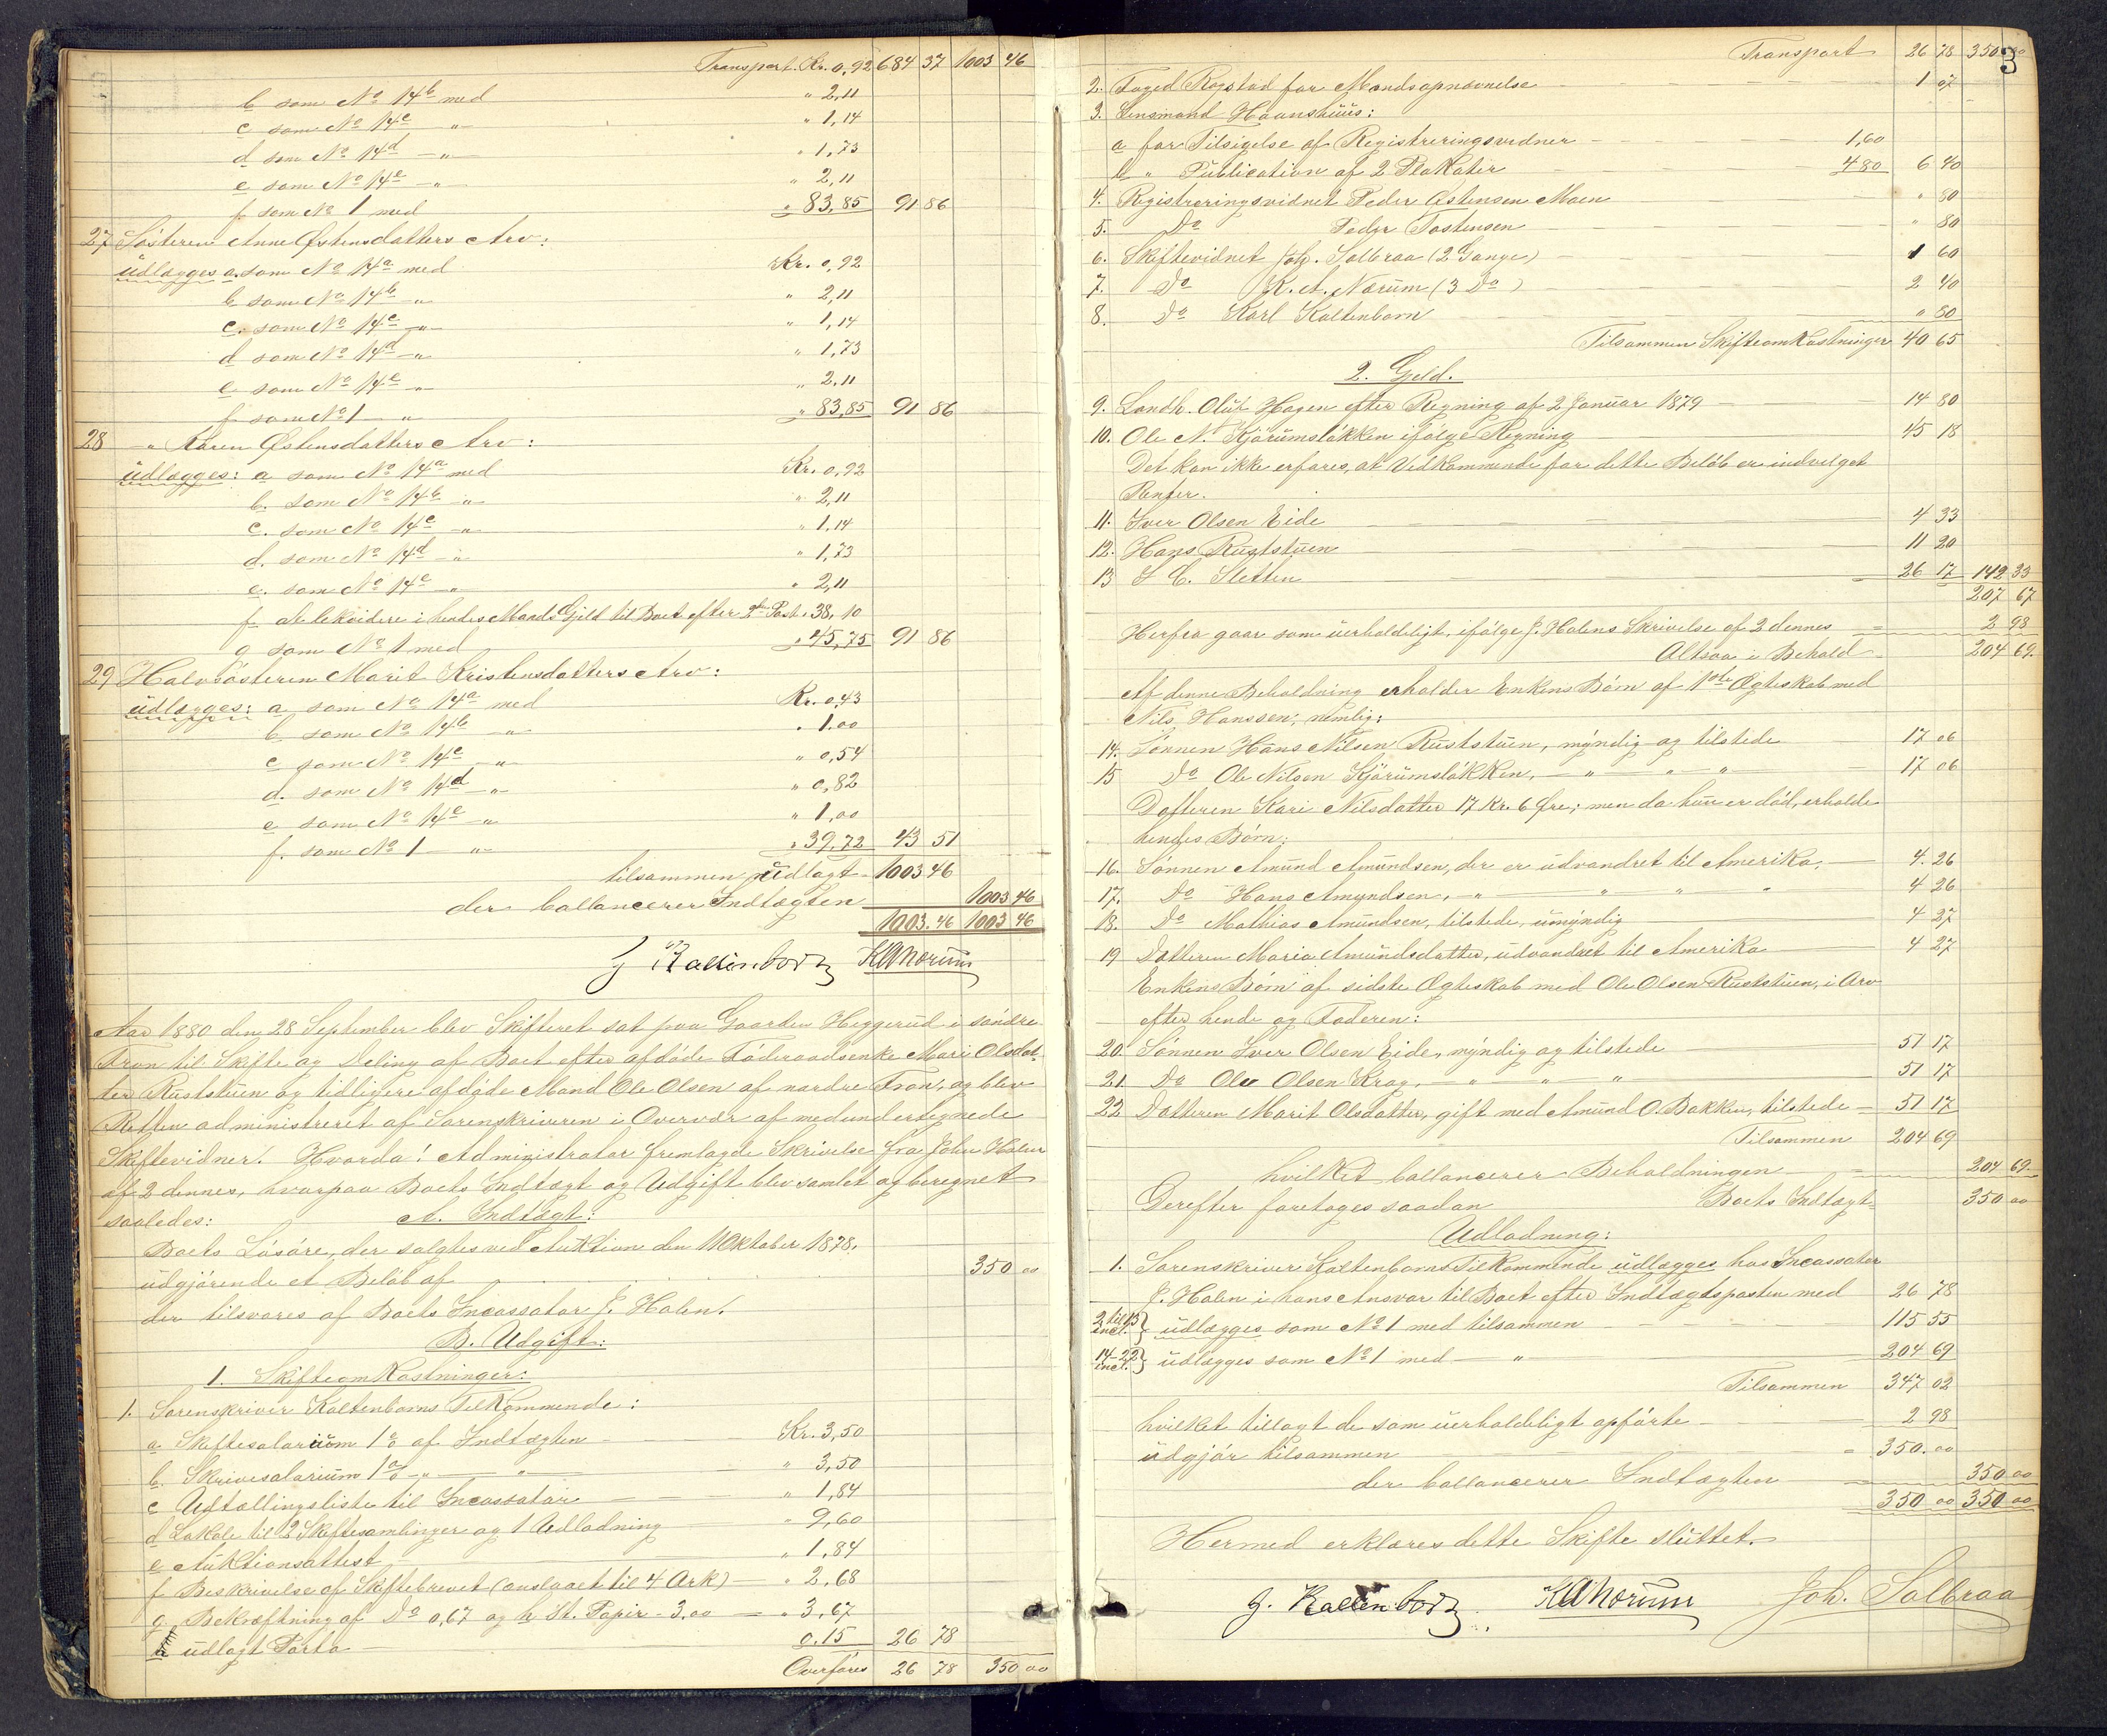 Transport. Kr. 0,92 684 37 1003 46
b som No 14b med " 2,11
c som No 14c " " 1,14
d som No 14d " " 1,73
e som No 14e " " 2,11
f. som No 1 med " 83,85 91 86
27 Søsteren Anne Østensdatters Arv:
udlægges a. som No 14a med Kr. 0,92
b som No 14b " " 2,11
c. som No 14c " " 1,14
d som No 14d " " 1,73
e som No 14e " " 2,11
f som No 1 " " 83,85 91 86
28 " Karen Østensdatters Arv:
udlægges: a som No 14a med Kr. 0,92
b. som No 14b " " 2,11
c. som No 14c " " 1,14
d. som No 14d " " 1,73
e. som No 14e " " 2,11
f at lekvidere i hendes Mands Gjeld til Boet efter 2den Post " 38,10
g som No 1 med " 45,75 91 86
29 Halvsøsteren Marit Kristensdatters Arv:
udlægges: a som No 14a med Kr. 0,43
b som No 14b " " 1.00
c som No 14c " " 0,54
d. som No 14d " " 0,82
e som No 14e " " 1,00
f. som No 1 " " 39,72 43 51
tilsammen udlagt 1003 46
der ballancerer Indtægten 1003 46
1003. 46 1003 46
J Kaltenborn KANærum
Aar 1880 den 28 September blev Skifteret sat paa Gaarden Heggerud i søndre
Fron til Skifte og Deling af Boet efter afdøde Føderaadsenke Mari Olsdat-
ter Ruststuen og tidligere afdøde Mand Ole Olsen af nordre Fron, og blev
Retten administreret af Sorenskriveren i Overvær af medundertegnede
Skiftevidner. Hvorda: Administrator fremlagde Skrivelse fra John Holen
af 2 dennes, hvorpaa Boets Indtægt og Udgift blev samlet og beregnet
saaledes: A. Indtægt:
Boets Løsøre, der solgtes ved Auktion den 11 Oktober 1878,
udgjørende et Beløb af 350 00
der tilsvares af Boets Incassator J. Holen.
B. Udgift:
1. Skifteomkostninger:
1. Sorenskriver Kaltenborns Tilkommende:
a Skiftesalarium 1% af Indtægten Kr. 3,50
b. Skrivesalarium 1% " " " 3,50
c Udtællingsliste til Incassator " 1,84
d Lokale til 2 Skiftesamlinger og 1 Udlodning " 9,60
e Auktionsattest " 1,84
f Beskrivelse af Skiftebrevet (anslaaet til 4 Ark) " 2,68
g Bekræftning af Do 0,67 og h St. Papir 3,00 " 3,67
udlagt Porto 0.15 26 78
Overføres 26 78 350 00
3
Transport 26 78 350 00
2. Foged Rogstad for Mandsopnævnelse 1 07
3. Lensmand Haanshuus:
a for Tilsigelse af Registreringsvidner 1,60
b " Publication af 2 Plakater 4 80 6 40
4. Registreringsvidnet Peder Østensen Moen " 80
5. Do Peder Tostensen " 80
6. Skiftevidnet Joh. Solbraa (2 Gange) 1 60
7. Do K. A. Nærum (3 Do) 2 40
8. Do Karl Kaltenborn " 80
Tilsammen Skifteomkostninger 40 65
2. Gjeld.
9. Landh. Oluf Hagen efter Regning af 2 Januar 1879 14 80
10. Ole N. Kjørumsløkken ifølge Regning 45 18
Det kan ikke erfares, at Vedkommende for dette Beløb er indvilget
Renter.
11. Iver Olsen Eide 4 33
12. Hans Ruststuen 11 20
13 J C. Sletten 26 17 142 33
207 67
Herfra gaar som uerholdeligt, ifølge J. Holens Skrivelse af 2 dennes 2 98
Altsaa i Behold 204 69.
Af denne Beholdning erholder Enkens Børn af 1ste Ægteskab med
Nils Hanssen, nemlig:
14. Sønnen Hans Nilsen Ruststuen, myndig og tilstede 17 06
15 Do Ole Nilsen Kjørumsløkken, " " " 17 06
Datteren Kari Nilsdatter 17 Kr. 6 Øre; men da hun er død, erholde
hendes Børn:
16. Sønnen Amund Amundsen, der er udvandret til Amerika, 4. 26
17. Do Hans Amundsen, " " " " 4 26
18. Do Mathias Amundsen, tilstede, umyndig 4 27
19 Datteren Maria Amundsdatter, udvandret til Amerika 4 27
Enkens Børn af sidste Ægteskab med Ole Olsen Ruststuen, i Arv
efter hende og Faderen:
20. Sønnen Iver Olsen Eide, myndig og tilstede 51 17
21. Do Ole Olsen Krog, " " " 51 17
22 Datteren Marit Olsdatter, gift med Amund O. Bakken, tilstede 51 17
Tilsammen 204 69
hvilket ballancerer Beholdningen 204 69
Derefter foretoges saadan Boets Indtægt 350 00
Udlodning:
1. Sorenskriver Kaltenborns Tilkommende udlægges hos Incassator
J. Holen i hans Ansvar til Boet efter Indtægtsposten med 26 78
2 til 13 incl. } udlægges som No 1 med tilsammen 115 55
14-22 incl. } udlægges som No 1 med " 204 69
Tilsammen 347 02
hvilket tillagt de som uerholdeligt opførte 2 98
udgjør tilsammen 350. 00
der ballancerer Indtægten 350 00
350 00 350 00
Hermed erklæres dette Skifte sluttet.
J. Kaltenborn KANærum Joh. Solbraa